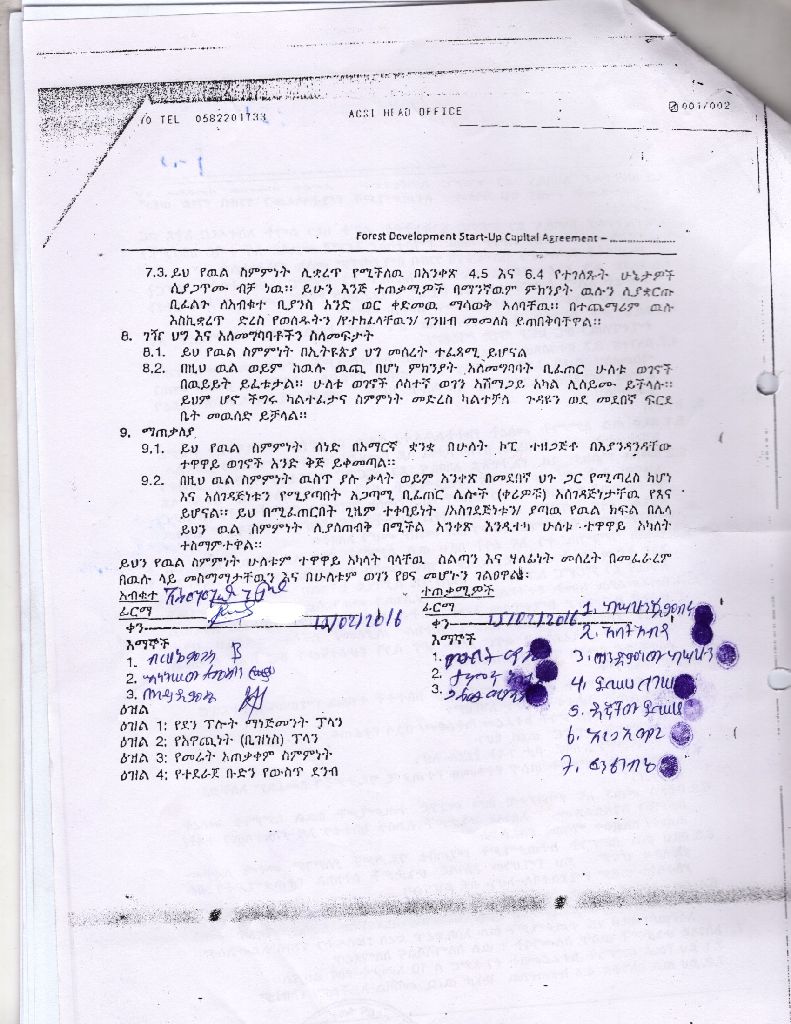 TO TEL 0582201733 ACSI HEAD OFFICE 001/002
Forest Development Start-Up Capital Agreement – ....................
7.3. ይህ የዉል ስምምነት ሊቋረጥ የሚችለዉ በአንቀጽ 4.5 እና 6.4 የተገለጹት ሁኔታዎች
ሲያጋጥሙ ብቻ ነዉ። ይሁን እንጅ ተጠቃሚዎች በማንኛዉም ምክንያት ዉሉን ሲያቋርጡ
ቢፈልጉ ለአብቁተ ቢያንስ አንድ ወር ቀድመዉ ማሳወቅ አለባቸዉ። በተጨማሪም ዉሉ
እስኪቋረጥ ድረስ የወሰዱትን /የተከፈላቸዉን/ ገንዘብ መመለስ ይጠበቅባቸዋል።
8. ገዥ ህግ እና አለመግባባቶችን ስለመፍታት
8.1. ይህ የዉል ስምምነት በኢትዮጵያ ህግ መሰረት ተፈጻሚ ይሆናል
8.2. በዚህ ዉል ወይም ከዉሉ ዉጪ በሆነ ምክንያት አለመግባባት ቢፈጠር ሁለቱ ወገኖች
በዉይይት ይፈቱታል። ሁለቱ ወገኖች ሶስተኛ ወገን አሸማጋይ አካል ሊሰይሙ ይችላሉ።
ይህም ሆኖ ችግሩ ካልተፈታና ስምምነት መድረስ ካልተቻለ ጉዳዩን ወደ መደበኛ ፍርድ
ቤት መዉሰድ ይቻላል።
9. ማጠቃለያ
9.1. ይህ የዉል ስምምነት ሰነድ በአማርኛ ቋንቋ በሁለት ኮፒ ተዘጋጅቶ በእያንዳንዳቸው
ተዋዋይ ወገኖች አንድ ቅጅ ይቀመጣል።
9.2. በዚህ ዉል ስምምነት ዉስጥ ያሉ ቃላት ወይም አንቀጽ በመደበኛ ህጉ ጋር የሚጣረስ ከሆነ
እና አስገዳጅነቱን የሚያጣበት አጋጣሚ ቢፈጠር ሌሎች (ቀሪዎቹ) አስገዳጅነታቸዉ የጸና
ይሆናል። ይህ በሚፈጠርበት ጊዜም ተቀባይነት /አስገደጅነቱን/ ያጣዉ የዉል ክፍል በሌላ
ይህን ዉል ስምምነት ሊያስጠብቅ በሚችል አንቀጽ እንዲተካ ሁለቱ ተዋዋይ አካላት
ተስማምተዋል።
ይህን የዉል ስምምነት ሁለቱም ተዋዋይ አካላት ባላቸዉ ስልጣን እና ሃላፊነት መሰረት በመፈራረም
በዉሉ ላይ መስማማታቸዉን እና በሁለቱም ወገን የፀና መሆኑን ገልፀዋል፡
አብቁተ ተጠቃሚዎች
ፊርማ ፊርማ 1.
ቀን 15/02/2016 ቀን 15/02/2016 2.
እማኞች እማኞች
1. 1. 3.
2. 2. 4.
3. 3. 5.
ዕዝል
ዕዝል 1: የደን ፕሎት ማነጅመንት ፕላን
ዕዝል 2: የአዋጪነት (ቢዝነስ) ፕላን 6.
ዕዝል 3: የመሬት አጠቃቀም ስምምነት
ዕዝል 4: የተደራጀ ቡድን የውስጥ ደንብ 7.